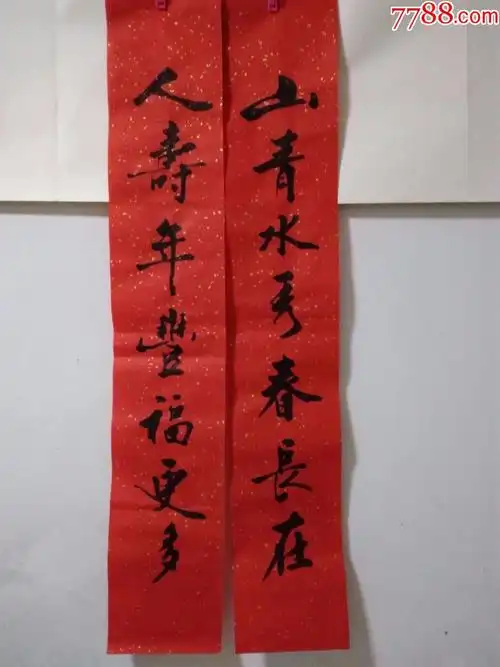 7788.com
山青水秀春長在
人壽年豐福更多